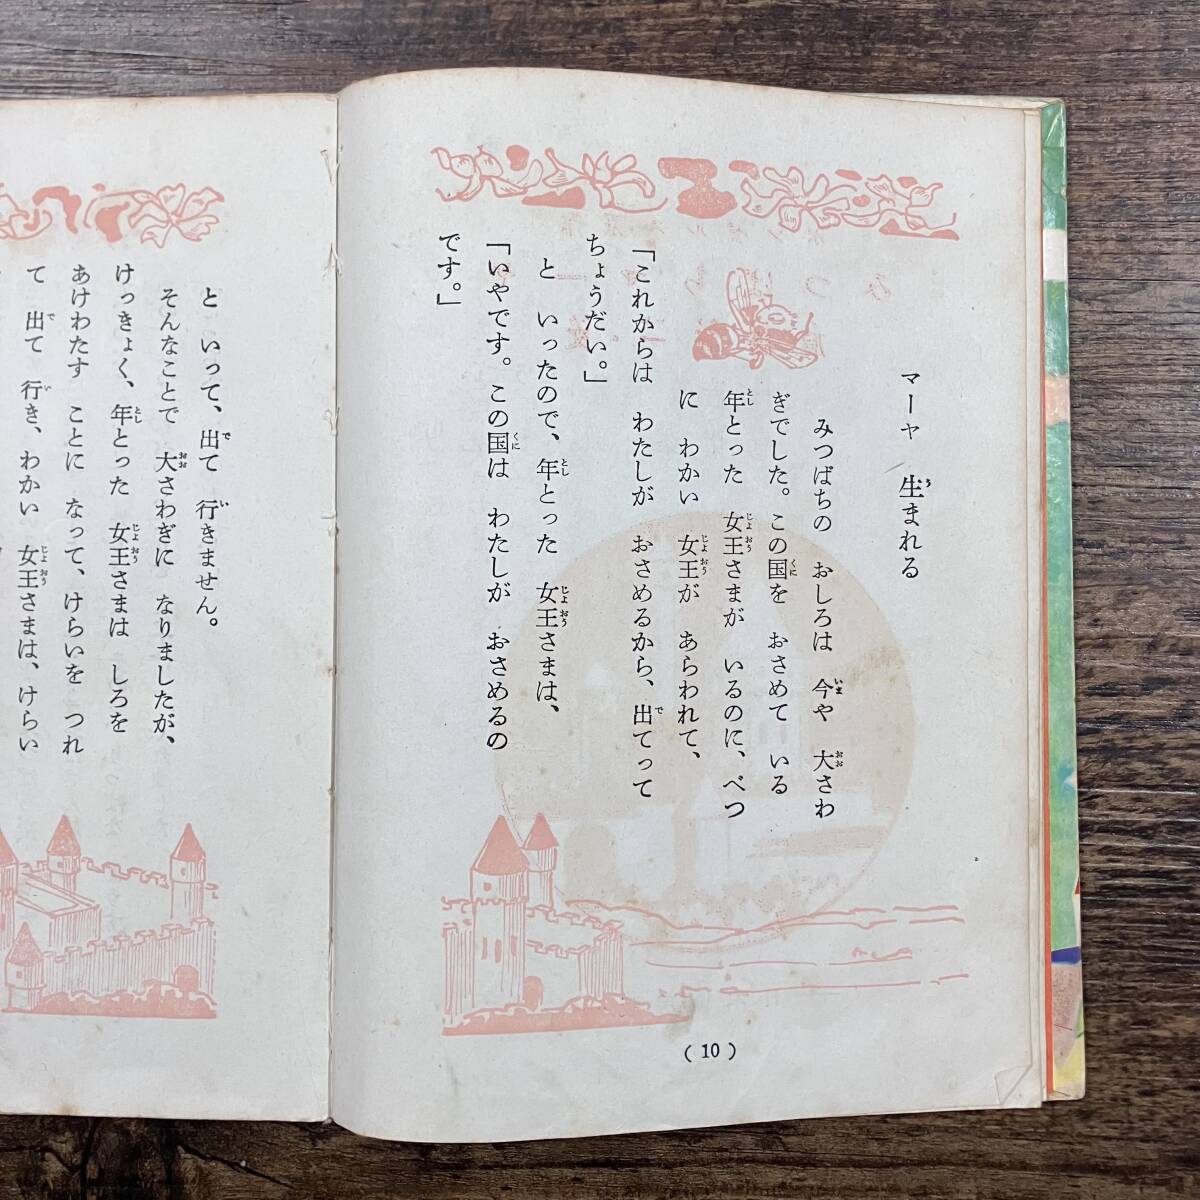 マーヤ 生まれる
みつばちの おしろは 今や 大さわ
ぎでした。この国を おさめて いる
年とった 女王さまが いるのに、べつ
に わかい 女王が あらわれて、
「これからは わたしが おさめるから、出てって
ちょうだい。」
と いったので、年とった 女王さまは、
「いやです。この国は わたしが おさめるの
です。」
(10)
と いって、出て 行きません。
そんなことで 大さわぎに なりましたが、
けっきょく、年とった 女王さまは しろを
あけわたす ことに なって、けらいを つれ
て 出て 行き、わかい 女王さまは、けらい